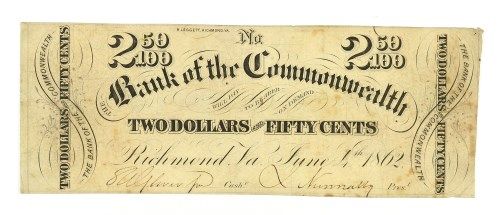 R. LEGGETT, RICHMOND, VA.
2 50/100 No. 2 50/100
THE Bank of the Commonwealth
WILL PAY TO BEARER ON DEMAND
TWO DOLLARS AND FIFTY CENTS
Richmond Va June 4th 1862
Cash! L Nunnally Pres!
TWO DOLLARS FIFTY CENTS
THE BANK OF THE COMMONWEALTH
THE BANK OF THE COMMONWEALTH
TWO DOLLARS FIFTY CENTS